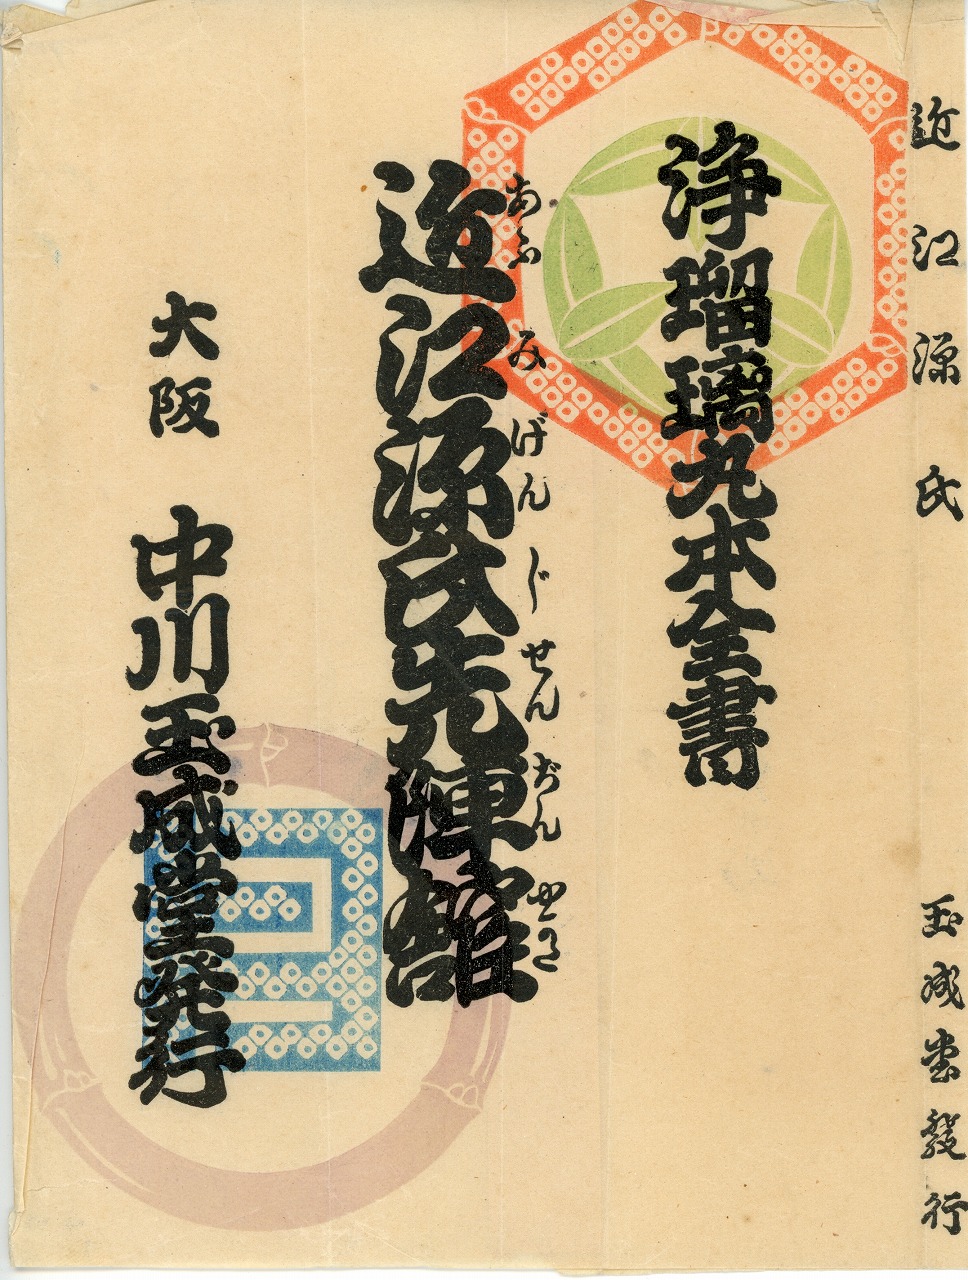 近江源氏
玉成堂發行
浄瑠璃丸本全書
あふみげんじせんぢんやかた
近江源氏先陣館
大阪 中川玉成堂発行